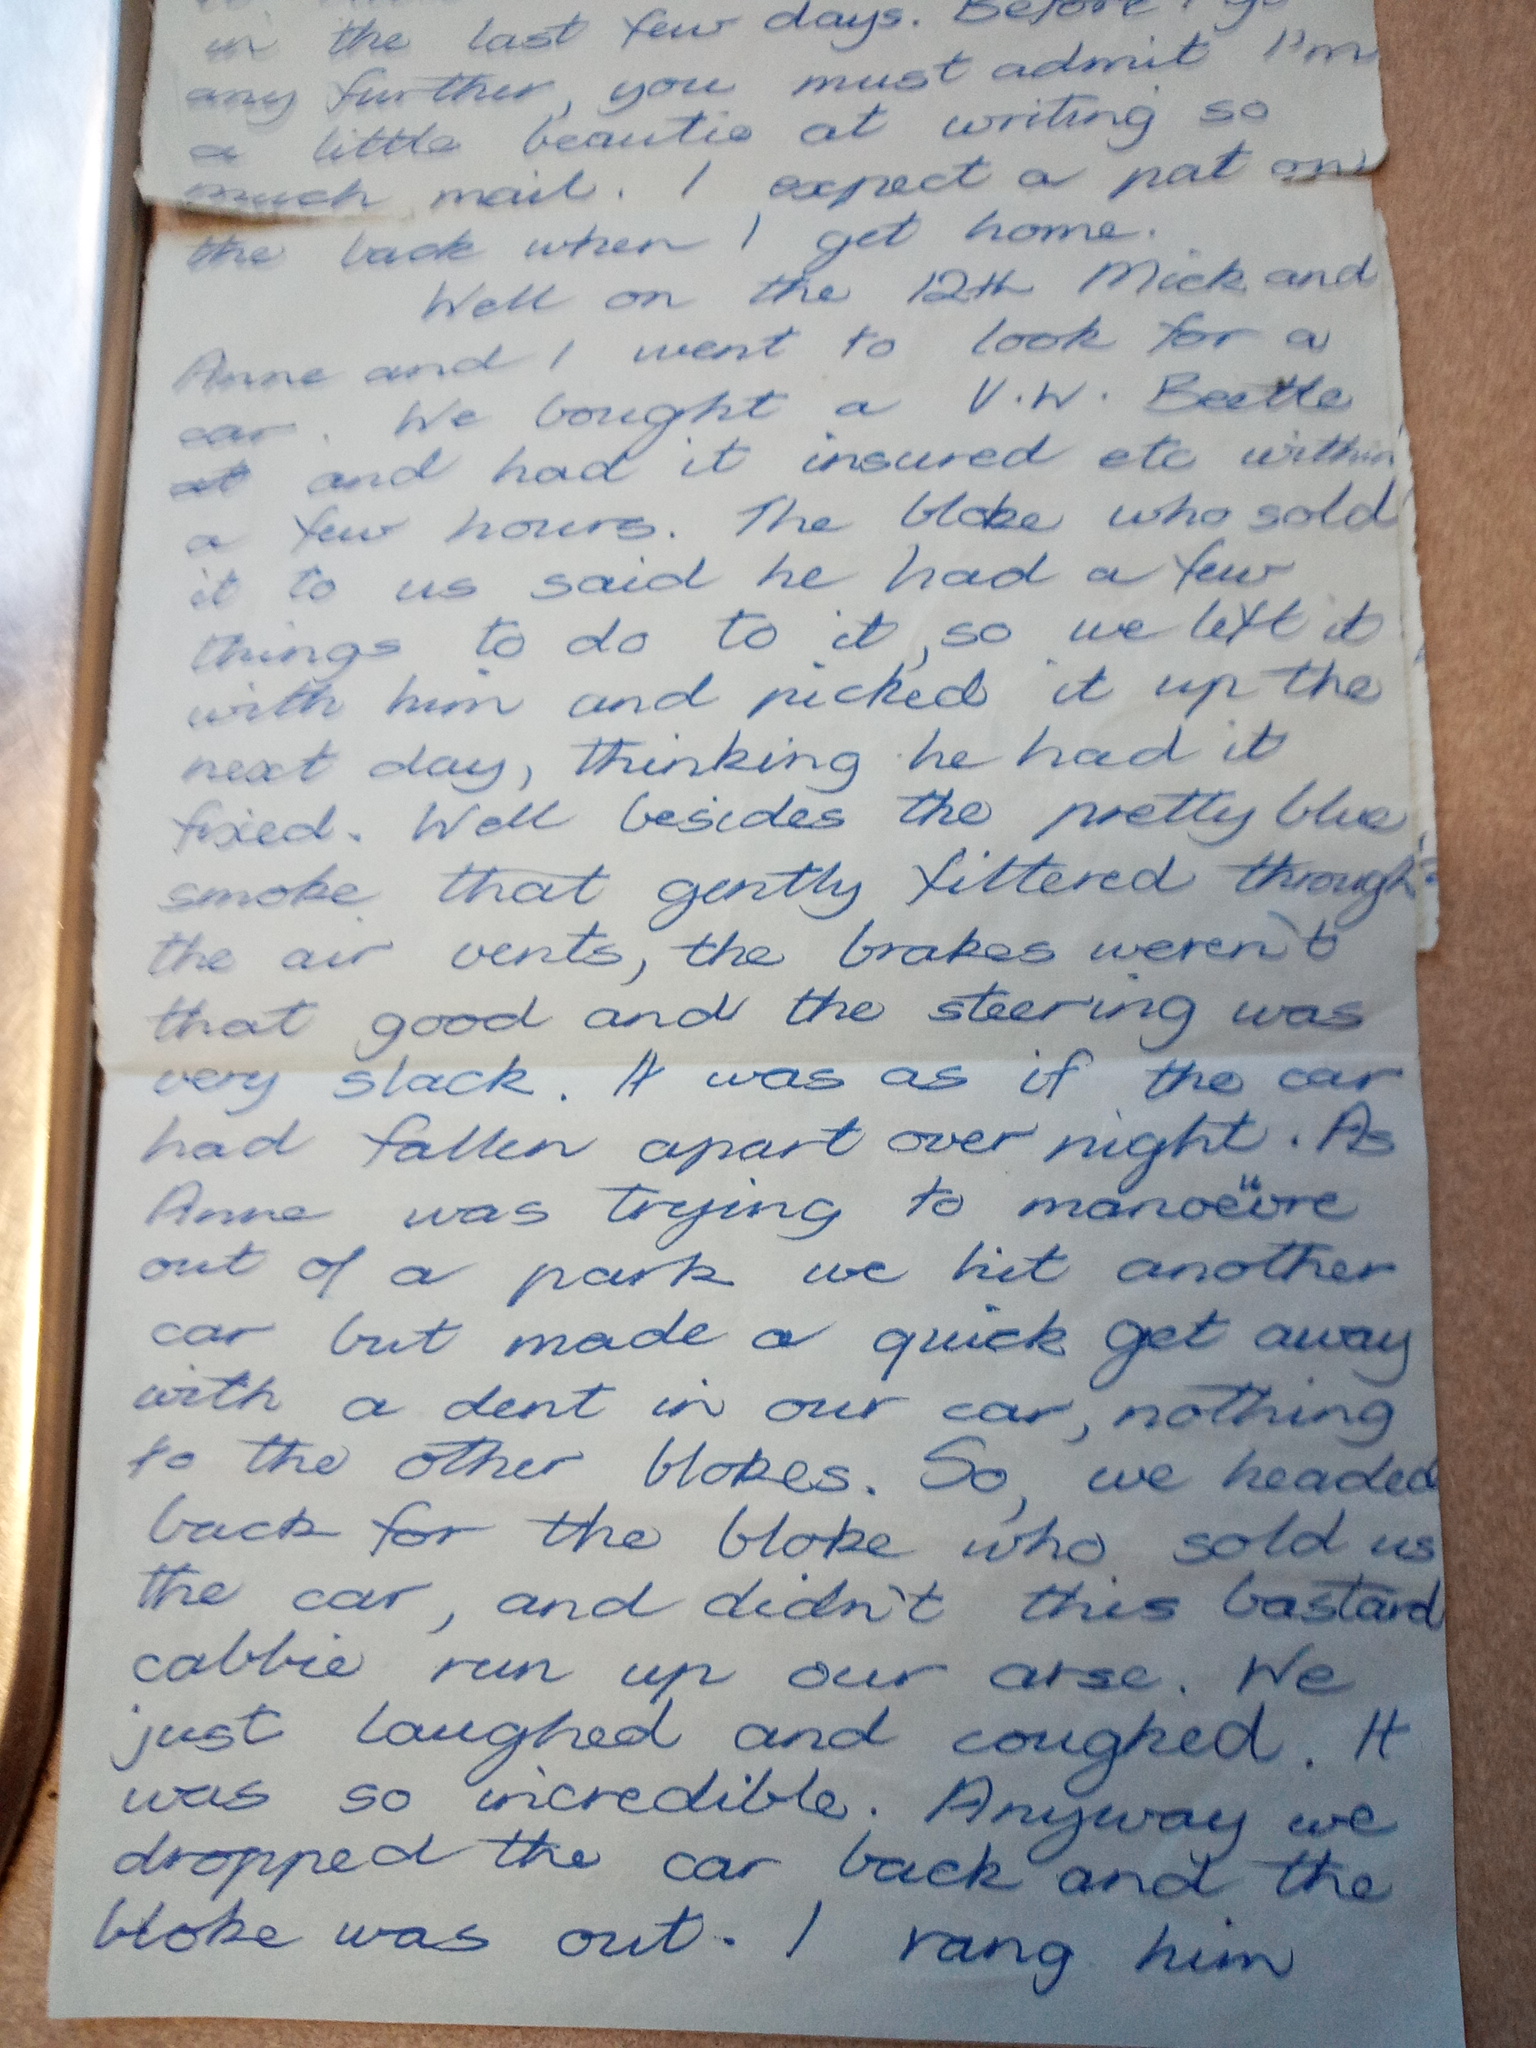 in the last few days. Before I go
any further, you must admit I'm
a little beautie at writing so
much mail. I expect a pat on
the back when I get home.
Well on the 12th Mick and
Anne and I went to look for a
car. We bought a V.W. Beetle
at and had it insured etc within
a few hours. The bloke who sold
it to us said he had a few
things to do to it, so we left it
with him and picked it up the
next day, thinking he had it
fixed. Well besides the pretty blue
smoke that gently filtered through
the air vents, the brakes weren't
that good and the steering was
very slack. It was as if the car
had fallen apart over night. As
Anne was trying to manoeüvre
out of a park we hit another
car but made a quick get away
with a dent in our car, nothing
to the other blokes. So, we headed
back for the bloke who sold us
the car, and didn't this bastard
cabbie run up our arse. We
just laughed and coughed. It
was so incredible. Anyway we
dropped the car back and the
bloke was out. I rang him